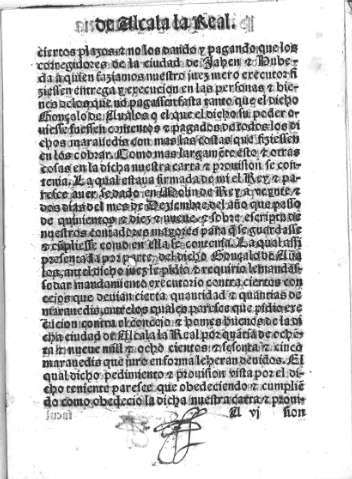 de Alcala la Real.
ciertos plazos ⁊ no los dando y pagando que los
corregidores de la ciudad de Jahen ⁊ Vbe
da a quien faziamos nuestro juez mero executor fi
ziessen entrega y execucion en las personas ⁊ bie
nes delos que no pagassen fasta tanto que el dicho
Gonçalo de el que el dicho su poder o
uiesse fuessen contentos ⁊ pagados de todos los di
chos marauedis con mas las costas que fiziessen
en los cobrar. Como mas largamẽte esto ⁊ otras
cosas en la dicha nuestra carta ⁊ prouisiõ se con
tenia. La qual estaua firmada de mi el Rey ⁊ pa
resce auer se dado en Molin de Rey a veynte ⁊
dos dias del mes de Deziembre del año que passo
de quinientos ⁊ diez ⁊ nueue ⁊ sobre escripta de
nuestros contadores mayores para q̃ se guardasse
⁊ cũpliesse como en ella se contenia. La qual assi
presentada por parte del dicho Gonçalo de
ante el dicho juez le pidio ⁊ requirio le mandas
se dar mandamiento executorio contra ciertos con
cejos que deuian cierta quantidad ⁊ quantias de
marauedis ante los quales paresce que pidio exe
cucion contra el concejo ⁊ homes buenos de la di
cha ciudad de Alcala la Real por quãtia de oche
ta ⁊ nueue mill ⁊ ocho cientos ⁊ sesenta ⁊ cinco
marauedis que juro en forma le heran deuidos. El
qual dicho pedimiento ⁊ prouision vista por el di
cho teniente paresce que obedeciendo ⁊ cumpliẽ
do como obedecio la dicha nuestra carta ⁊ proui
A vj sion